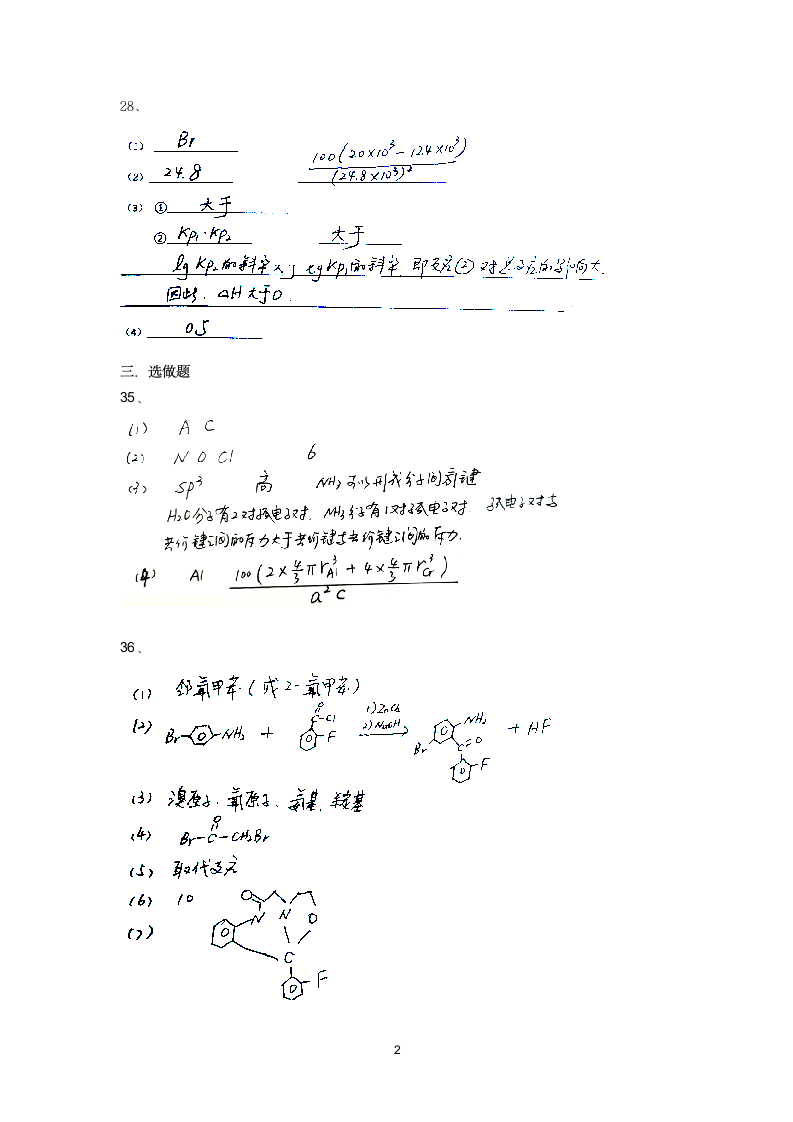 28、
(1) Br
(2) 24.8 100(20×10³-12.4×10³)/(24.8×10³)²
(3) ① 大于
② Kp₁·Kp₂ 大于
lgKp₂的斜率大于lgKp₁的斜率,即反应②对总反应的影响大.
因此,△H大于0.
(4) 0.5
三. 选做题
35、
(1) A C
(2) N O Cl 6
(3) sp³ 高 NH₃可以形成分子间氢键
H₂O分子有2对孤电子对, NH₃分子有1对孤电子对 孤电子对与
共价键之间的斥力大于共价键与共价键之间的斥力.
(4) Al 100(2×4/3πr³Al+4×4/3πr³Cr)/a²c
36、
(1) 邻氟甲苯(或2-氟甲苯)
(2) Br NH₂ + O C Cl F 1)ZnCl₂ 2)NaOH NH₂ Br C=O F + HF
(3) 溴原子、氟原子、氨基、羰基
(4) Br-C-CH₂Br O
(5) 取代反应
(6) 10
(7) O N N O C F
2